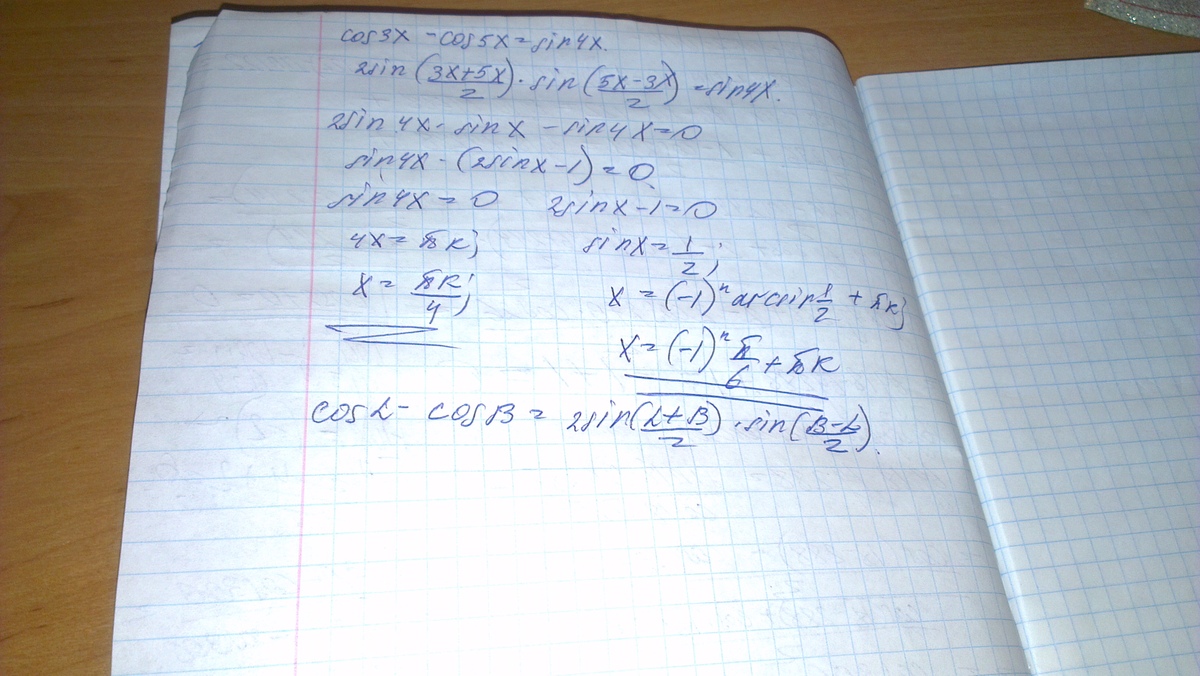 cos3x - cos5x = sin4x.
2sin(3x+5x/2) · sin(5x-3x/2) = sin4x.
2sin4x · sinx - sin4x = 0
sin4x · (2sinx - 1) = 0.
sin4x = 0 2sinx - 1 = 0
4x = πk; sinx = 1/2;
x = πk/4; x = (-1)^n arcsin 1/2 + πk;
x = (-1)^n π/6 + πk
cosL - cosB = 2sin(L+B/2) · sin(B-L/2).